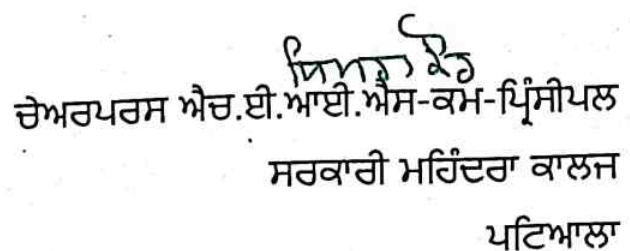 ਸਿਮਰਤ ਕੌਰ
ਚੇਅਰਪਰਸ ਐਚ.ਈ.ਆਈ.ਐਸ-ਕਮ-ਪ੍ਰਿੰਸੀਪਲ
ਸਰਕਾਰੀ ਮਹਿੰਦਰਾ ਕਾਲਜ
ਪਟਿਆਲਾ